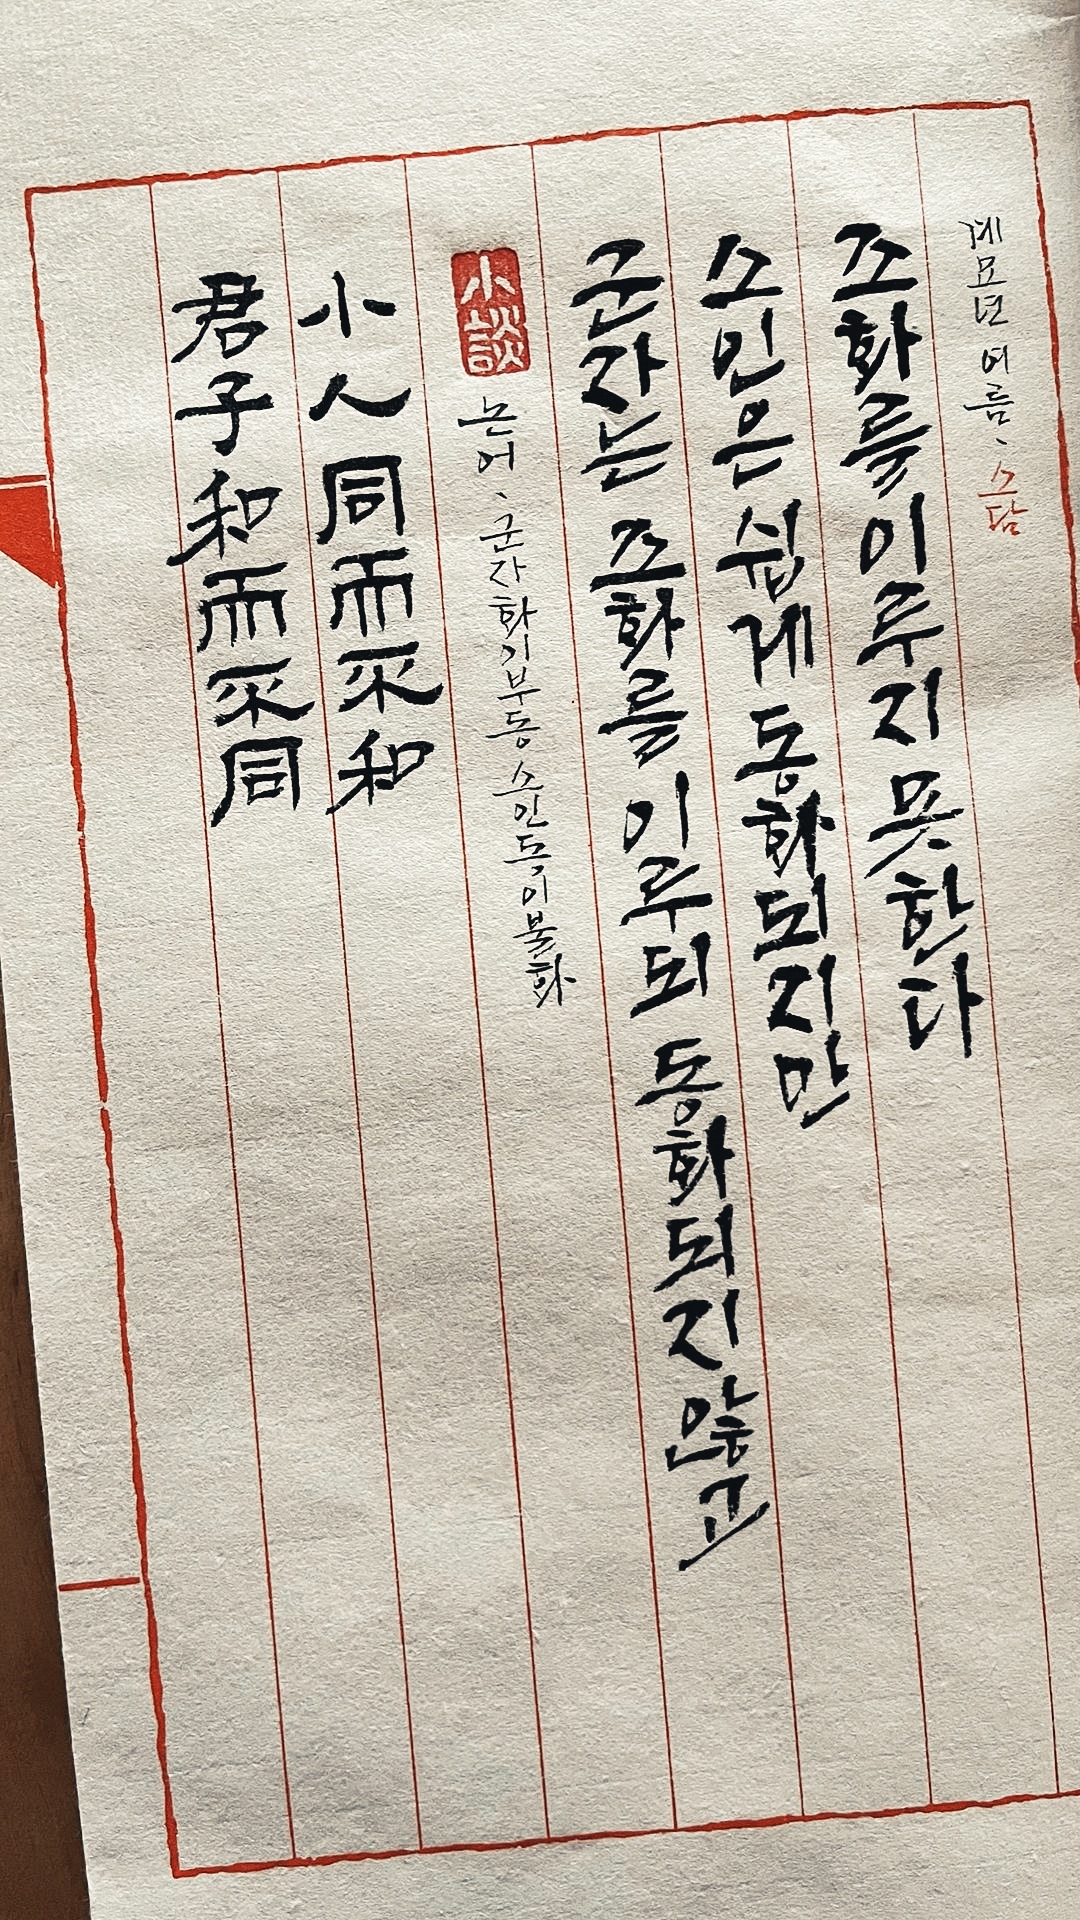 君子和而不同
小人同而不和
小談
논어、군자화이부동 소인동이불화
군자는 조화를 이루되 동화되지 않고
소인은 쉽게 동화되지만
조화를 이루지 못한다
계묘년 여름、소담